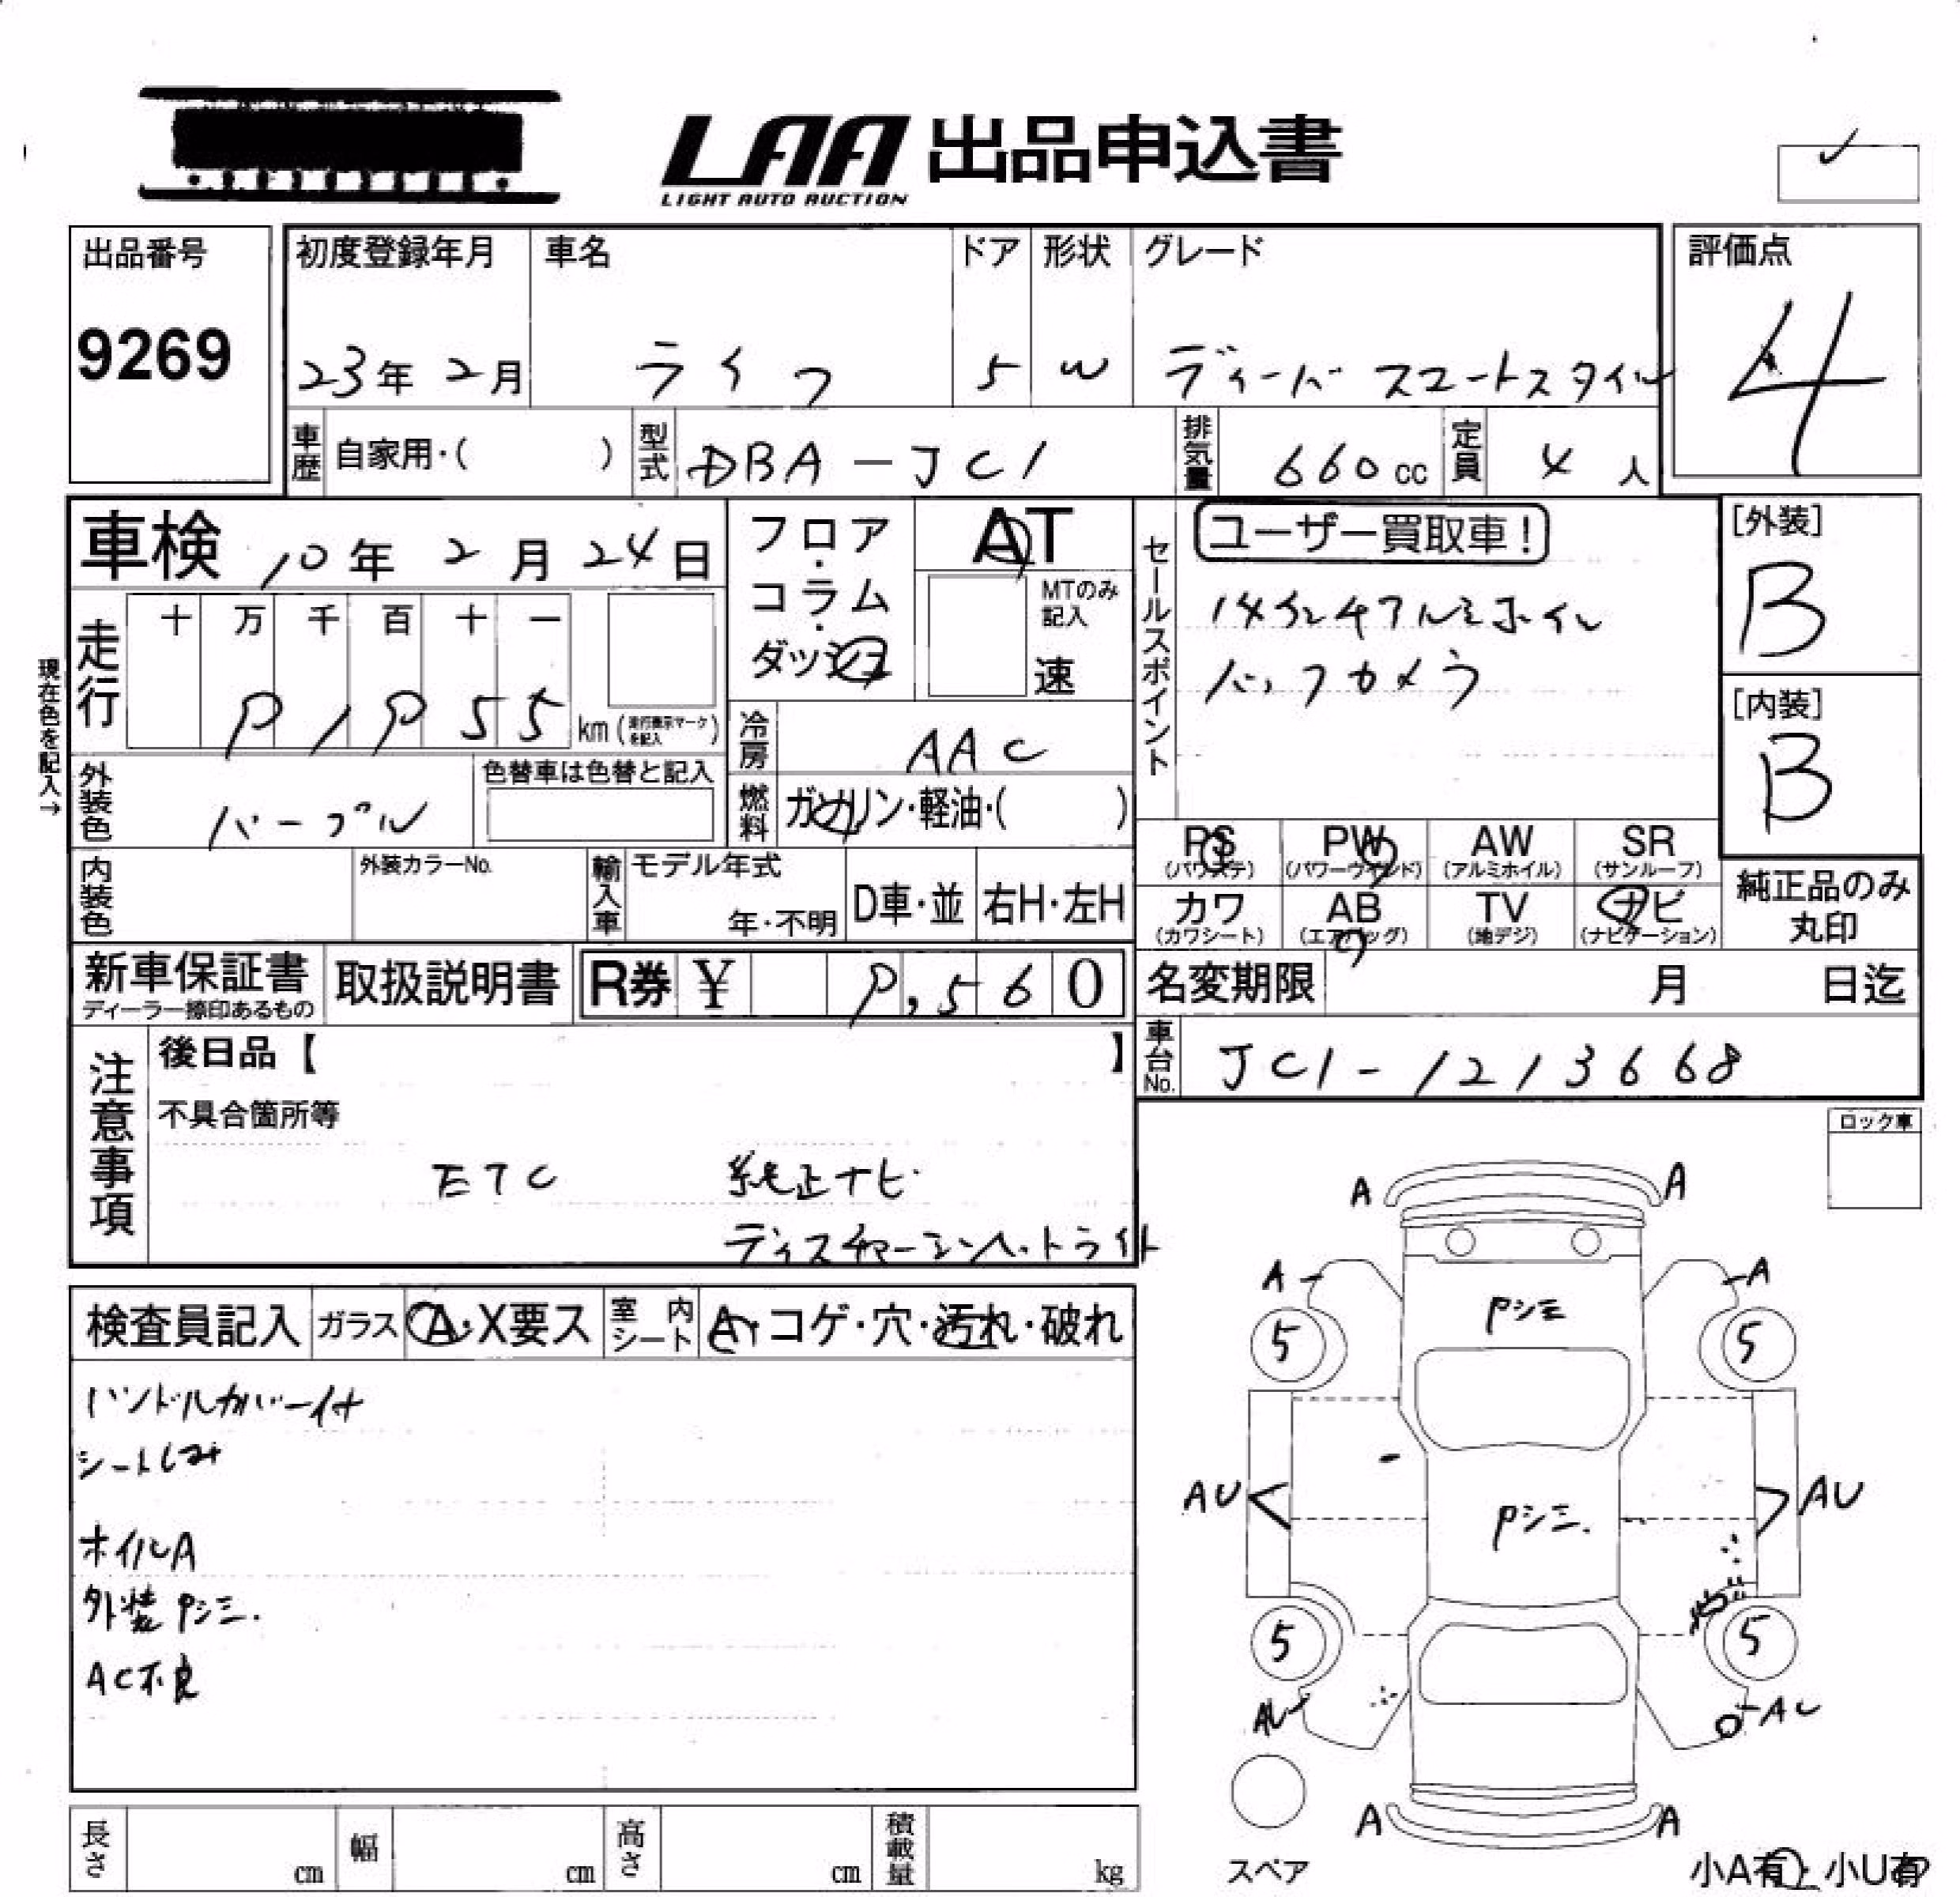 LAA 出品申込書
LIGHT AUTO AUCTION
出品番号
9269
初度登録年月
23年 2月
車名
ライフ
ドア
5
形状
W
グレード
ディーバ スマートスタイル
評価点
4
車歴
自家用・( )
型式
DBA-JC1
排気量
660cc
定員
4人
車検 10年 2月 24日
フロア・
コラム・
ダッシュ
AT
MTのみ
記入
速
セールスポイント
ユーザー買取車!
14インチアルミホイル
バックカメラ
[外装]
B
[内装]
B
現在色を記入→
走行
十 万 千 百 十 一
km(走行表示マークを記入)
冷房
AAC
外装色
パープル
色替車は色替と記入
燃料
ガソリン・軽油・( )
PS
(パワステ)
PW
(パワーウインド)
AW
(アルミホイル)
SR
(サンルーフ)
カワ
(カワシート)
AB
(エアバッグ)
TV
(地デジ)
ナビ
(ナビゲーション)
純正品のみ
丸印
内装色
外装カラーNo.
輸入車
モデル年式
年・不明
D車・並
右H・左H
新車保証書
ディーラー捺印あるもの
取扱説明書
R券 ¥
560
名変期限 月 日迄
車台No.
JC1-1213668
注意事項
後日品【 】
不具合箇所等
ETC 純正ナビ
ディスチャージヘットライト
ロック車
検査員記入
ガラス
A・X要ス
室内シート
A・コゲ・穴・汚れ・破れ
ハンドルカバー付
シートしみ
ホイルA
外装Pシミ.
AC不良
A A
A A
Pシミ
5 5
AU AU
Pシミ.
5 5
AU AU
A A
スペア
小A有・小U有
長さ cm
幅 cm
高さ cm
積載量 kg